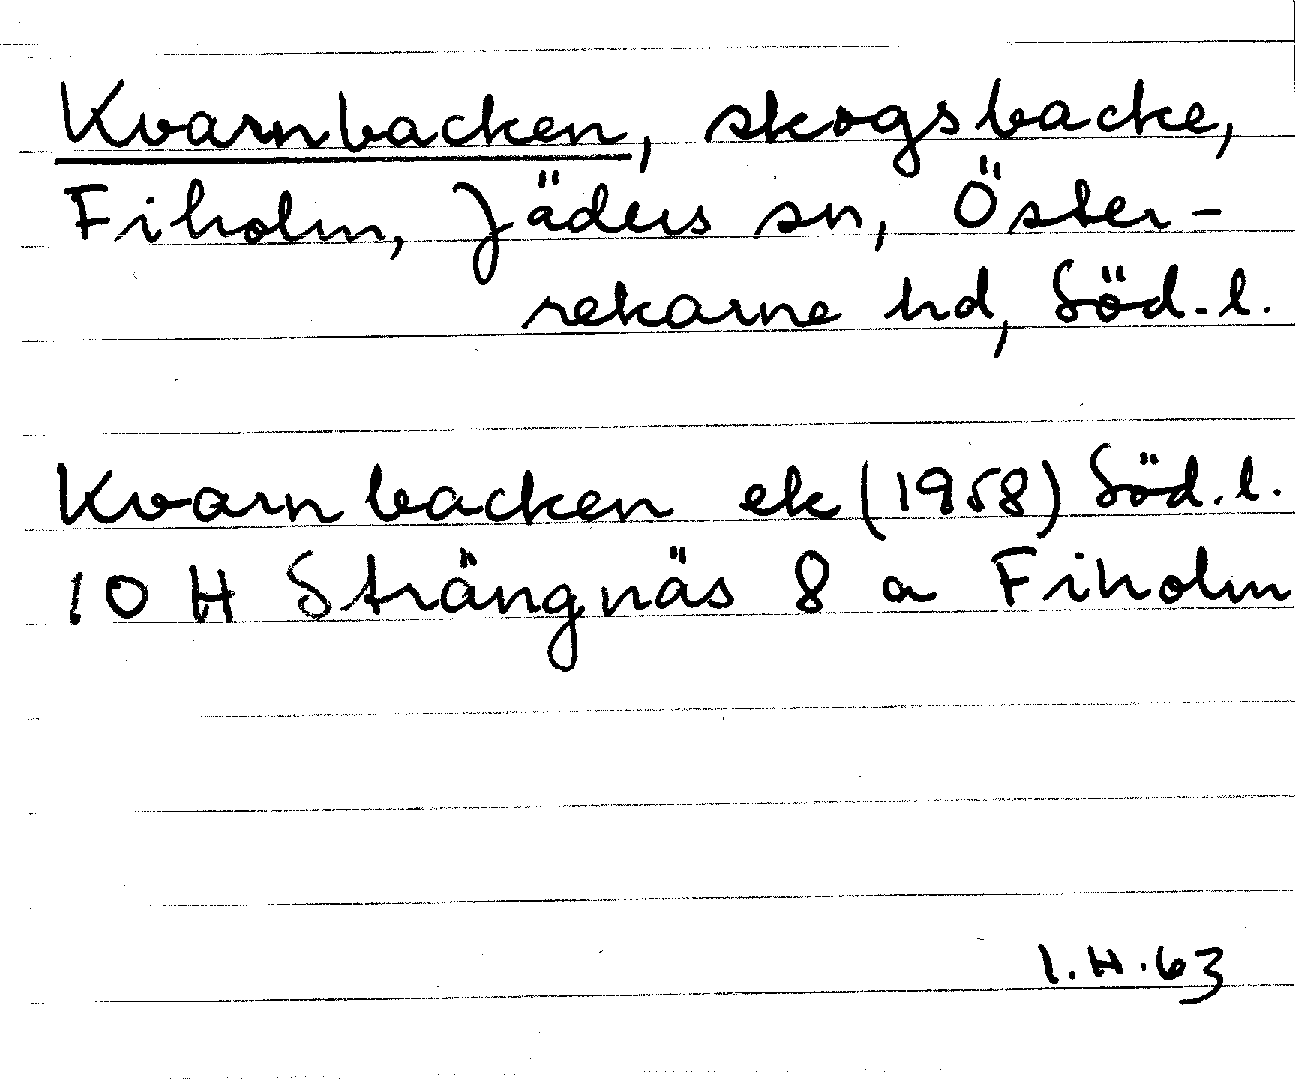 Kvarnbacken, skogsbacke,
Fiholm, Jäders sn, Öster-
rekarne hd, Söd.l.
Kvarnbacken ek (1958) Söd.l.
10 H Strängnäs 8 a Fiholm
I.H.63